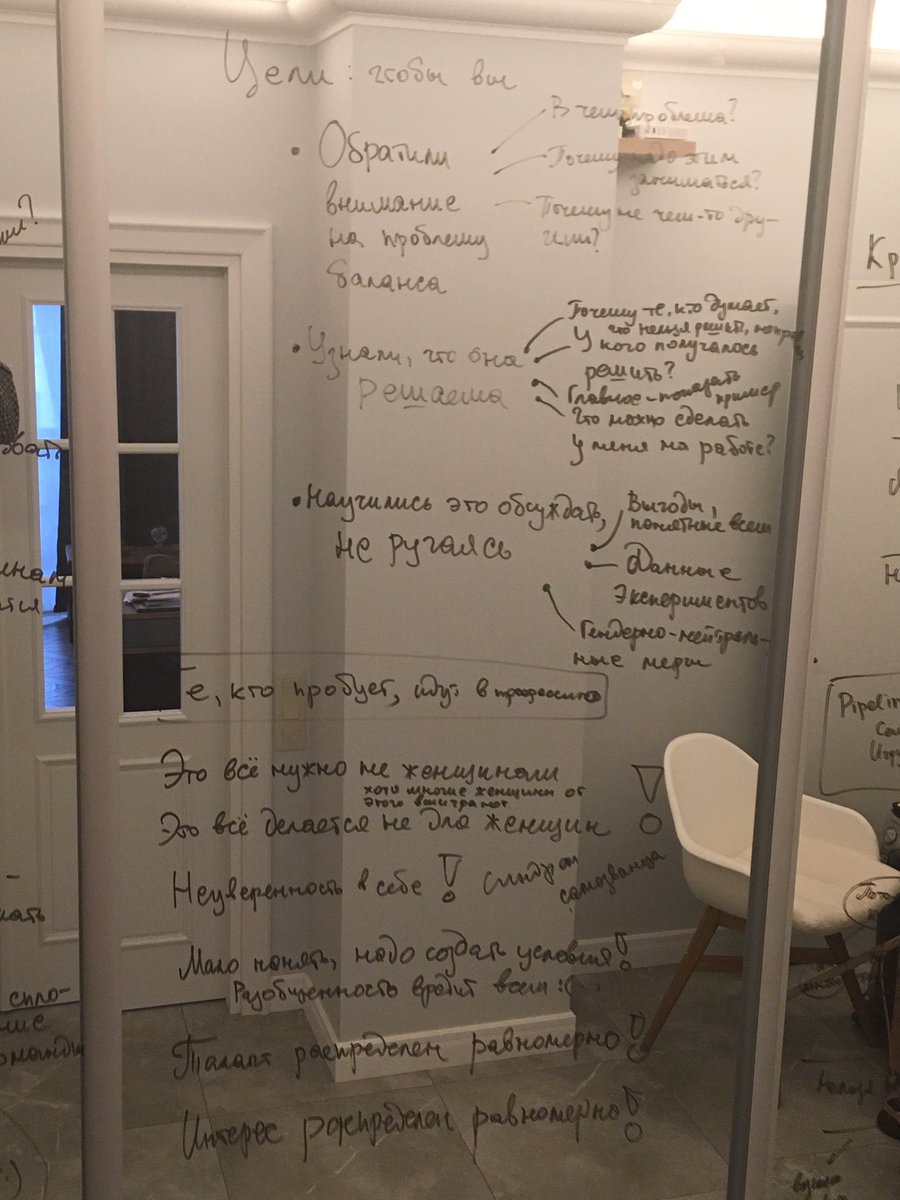 Цели: чтобы вы
• Обратили
внимание
на проблему
баланса
В чем проблема?
Почему надо этим
заниматься?
Почему не чем-то дру-
гим?
• Узнали, что она
Решаема
Почему те, кто думает,
что нельзя решить,
У кого получалось
решить?
Главное - показать
пример
Что можно сделать
у меня на работе?
• Научились это обсуждать,
не ругаясь
Выгоды,
понятные всем
Данные
Экспериментов
Гендерно-нейтраль-
ные меры
Те, кто пробует, идут в профессию
Это всё нужно не женщинам
хотя многие женщины от
этого выиграют
Это всё делается не для женщин !
Неуверенность в себе ! Синдром
самозванца
Мало нанять, надо создать условия!
Разобщенность вредит всем :(
Талант распределен равномерно!
Интерес распределен равномерно!
Кр
Pipelin